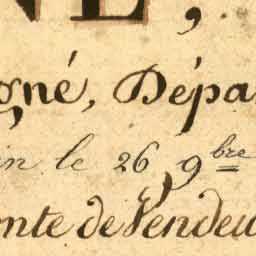 NE,
gné, Dépa
in le 26 9bre
nte de Vendeu